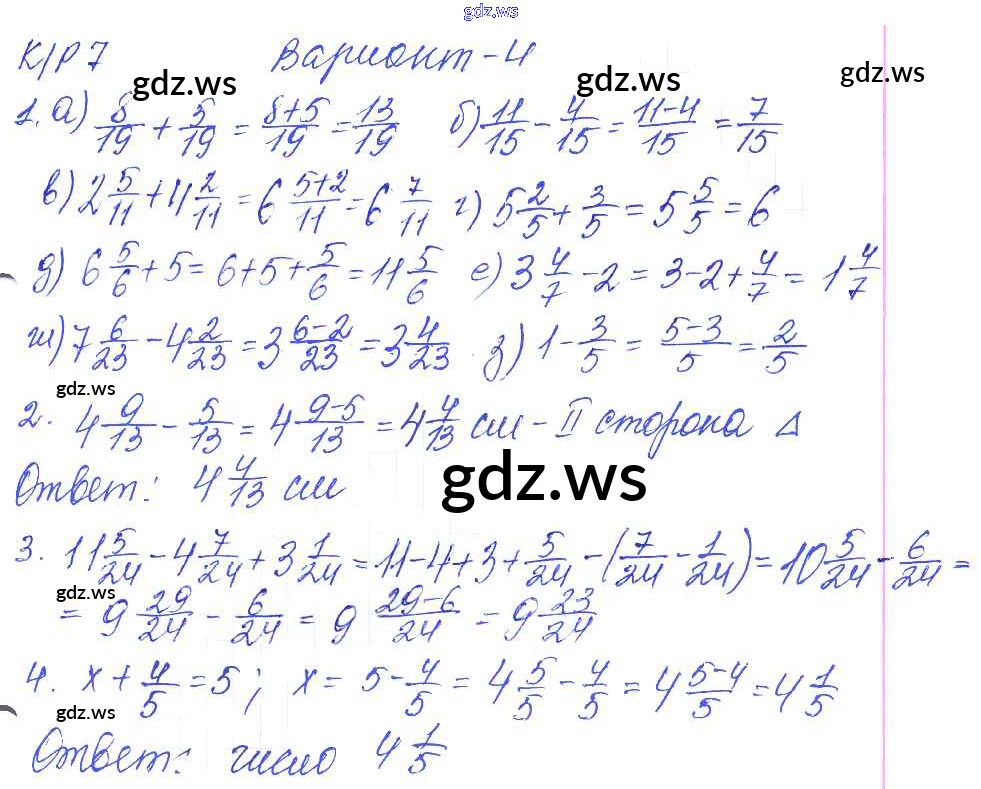 gdz.ws
К/Р 7 Вариант-4
gdz.ws gdz.ws
1. а) 8/19 + 5/19 = (8+5)/19 = 13/19 б) 11/15 - 4/15 = (11-4)/15 = 7/15
в) 2 5/11 + 4 2/11 = 6 (5+2)/11 = 6 7/11 г) 5 2/5 + 3/5 = 5 5/5 = 6
д) 6 5/6 + 5 = 6+5+5/6 = 11 5/6 е) 3 4/7 - 2 = 3-2+4/7 = 1 4/7
ж) 7 6/23 - 4 2/23 = 3 (6-2)/23 = 3 4/23 з) 1 - 3/5 = (5-3)/5 = 2/5
gdz.ws
2. 4 9/13 - 5/13 = 4 (9-5)/13 = 4 4/13 см - II сторона Δ
Ответ: 4 4/13 см
gdz.ws
3. 11 5/24 - 4 7/24 + 3 1/24 = 11-4+3+5/24 - (7/24 - 1/24) = 10 5/24 - 6/24 =
gdz.ws
= 9 29/24 - 6/24 = 9 (29-6)/24 = 9 23/24
4. x + 4/5 = 5; x = 5 - 4/5 = 4 5/5 - 4/5 = 4 (5-4)/5 = 4 1/5
gdz.ws
Ответ: число 4 1/5